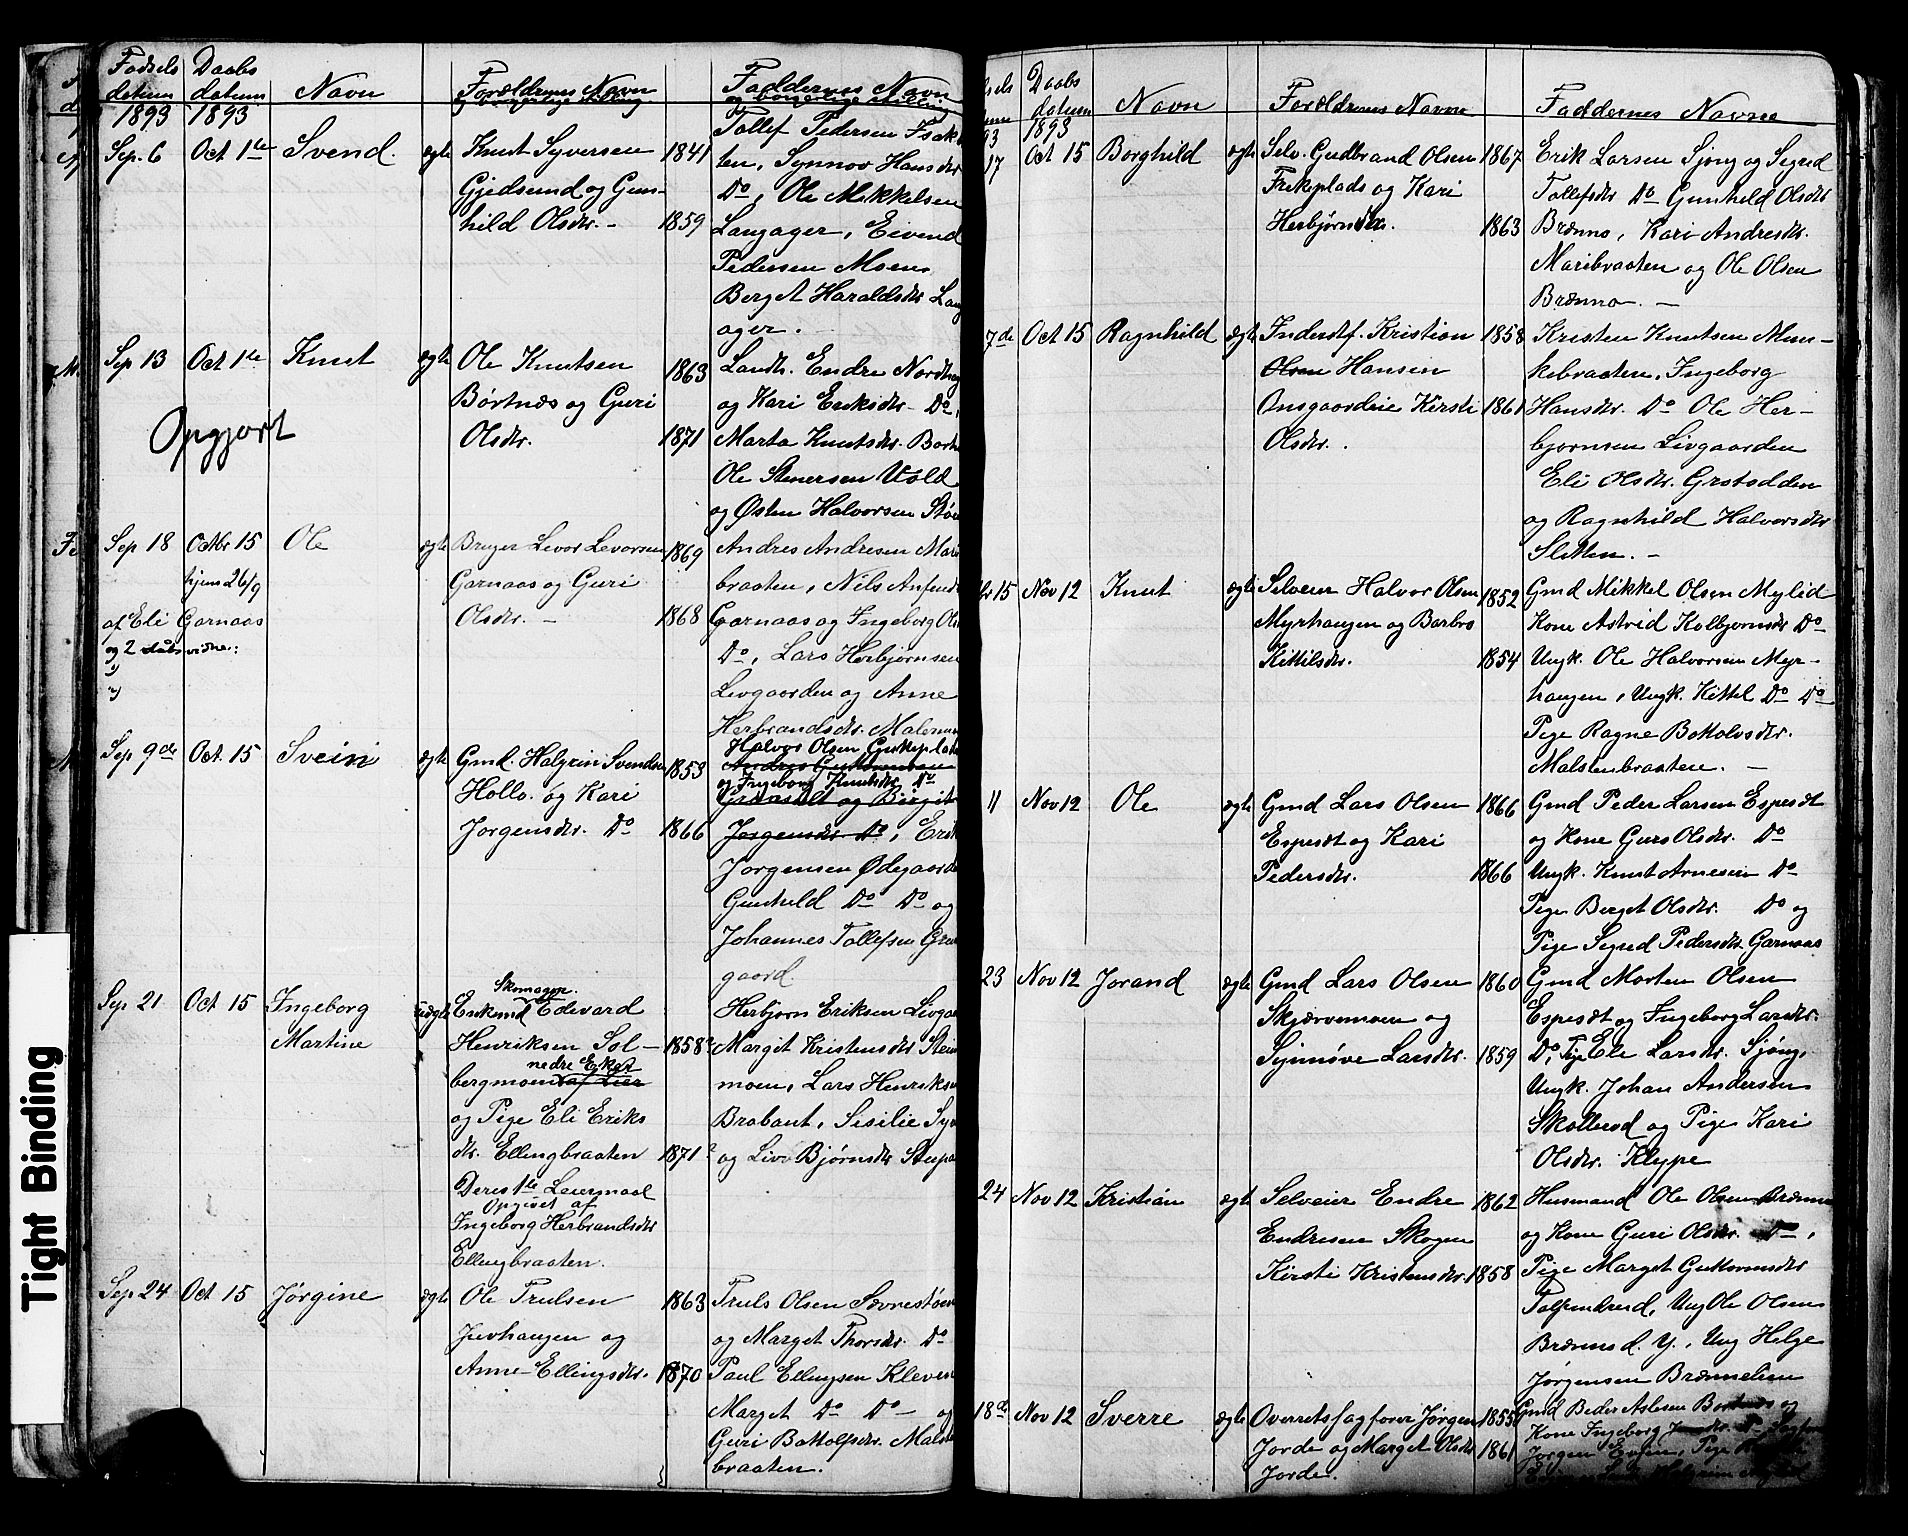 Fødsels datum 1893
Daabs datum 1893
Navn
Forældrenes Navn og borgerlige stilling
Faddernes Navn og borgerlige stilling
Sep. 6 Oct 1te Svend. ægte
Knut Syversen 1841
Gjedsund og Gun-
hild Olsdtr. - 1859
Tollef Pedersen
Synnøv Hansdtr
Do, Ole Mikkelsen
Langager, Eivend
Pedersen Moen
Berget Haraldsdtr Lang
ager.
Sep 13 Oct 1te Knut ægte
Opgjort
Ole Knutsen 1863
Børtnæs og Guri
Olsdtr. 1871
Landh. Endre
og Kari Eriksdtr Do,
Marta Knutsdtr.
Ole Stenersen Vold
og Østen Halvorsen
Sep 18 Octbr 15 Ole ægte
hjem 26/9
af Eli Garnaas
og 2 dåbsvidne:
1)
2)
Bruger Levor Levorsen 1869
Garnaas og Guri
Olsdtr. - 1868
Andres Andresen Mari
braaten, Nils
Garnaas og Ingeborg Ols
Do, Lars Herbjørnsen
Livgaarden og Anne
Herbrandsdtr.
Sep 9de Oct. 15 Svein ægte
Gmd. Halgrin Svendsen 1853
Hollo. og Kari
Jørgensdtr. Do 1866
Halvor Olsen
og Ingeborg Knutsdtr. Do
og Birgit
Jørgensdtr Do, Erik
Jørgensen Ødegaard
Gunhild Do Do og
Johannes Tollefsen
gaard
Sep 21 Oct 15 Ingeborg uægte
Martine
Skomager.
Enkemd Edevard
Henriksen Sol- 1858?
nedre Eker
bergmoen af Lier
og Pige Eli Eriks
dtr. Ellingbraaten 1871?
Deres 1te Leiermaal
Opgivet af
Ingeborg Herbrandsdtr
Ellingbraaten.
Herbjørn Eriksen
Margit Kristensdtr
moen, Lars Henriks
Brabant, Sisilie
og Liv Bjørnsdtr
Sep 24 Oct 15 Jørgine ægte
Ole Trulsen 1863
Juvhaugen og
Anne Ellingsdtr. 1870
Truls Olsen
og Marget Thorsdtr. Do
Paul Ellingsen Kleven
Marget Do Do og
Guri Bottolfsdtr.
braaten.
Daabs datum 1893
Navn
Forældrenes Navn
Faddernes Navne
17 Oct 15 Borghild ægte
Selv. Gudbrand Olsen 1867
og Kari
Herbjørnsdtr. 1863
Erik Larsen Sjong og Sigrid
Tollefsdtr Do Gunhild Olsdtr
Brænno, Kari Andresdtr.
Maribraaten og Ole Olsen
Brænno. -
7de Oct 15 Ragnhild ægte
Inderstf. Kristian 1858
Olsen Hansen
Kirsti 1861
Olsdtr.
Kristen Knutsen Mun-
kebraaten, Ingeborg
Hansdtr. Do Ole Her-
bjørnsen Livgaarden
Eli Olsdtr.
og Ragnhild Halvorsdtr
Sletten. -
15 Nov 12 Knut ægte
Selveier Halvor Olsen 1852
Myrhaugen og Barbro
Kittilsdtr. 1854
Gmd Mikkel Olsen Mylid
Kone Astrid Kolbjørnsdtr Do
Ungk. Ole Halvorsen Myr-
haugen, Ungk. Kittel Do Do
Pige Ragne Botolvsdtr.
Malstenbraaten. -
11 Nov 12 Ole ægte
Gmd Lars Olsen 1866
Espesdt og Kari
Pedersdtr. 1866
Gmd Peder Larsen Espesdt
og Kone Guro Olsdtr. Do
Ungk. Knut Arnesen Do
Pige Berget Olsdtr. Do og
Pige Sigrid Pedersdtr Garnaas
23 Nov 12 Jorand ægte
Gmd Lars Olsen 1860
Skjærvemoen og
Synnøve Larsdtr. 1859
Gmd Morten Olsen
Espesdt og Ingeborg Larsdtr.
Do, Pige Eli Larsdtr. Sjong,
Ungk. Johan Andersen
Skollerud og Pige Kari
Olsdtr. Klype
24 Nov 12 Kristian ægte
Selveier Endre 1862
Endresen Skogen
Kirsti Kristensdtr. 1858
Husmand Ole Olsen Brænno
og Kone Guri Olsdtr. Do,
Pige Marget Guttormsdtr
Ung Ole Olsen
Brænno d. Y., Ung Helge
Jørgensen Brænnelien
18de Nov 12 Sverre ægte
Overretssagfører Jørgen 1855
Jorde og Marget Olsdtr 1861
Jorde.
Gmd Beder Aslesen Bortnæs og
Kone Ingeborg
Jørgen Evjen, Pige
Tight Binding